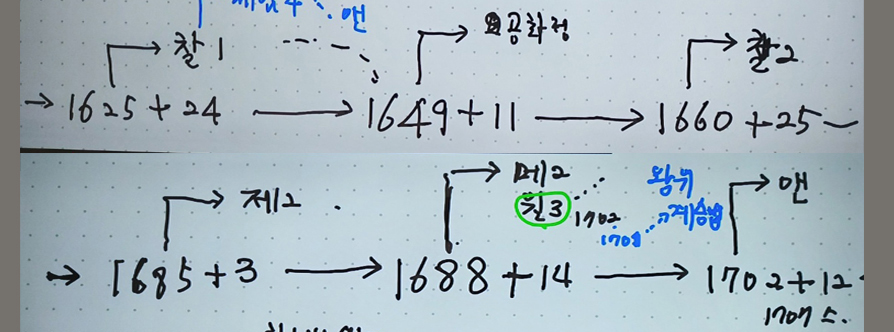 앤
찰1
공화정
찰2
→ 1625 + 24 → 1649 + 11 → 1660 + 25
제2
메2
윌3
1702
왕위
계승법
1701
앤
→ 1685 + 3 → 1688 + 14 → 1702 + 12
1707